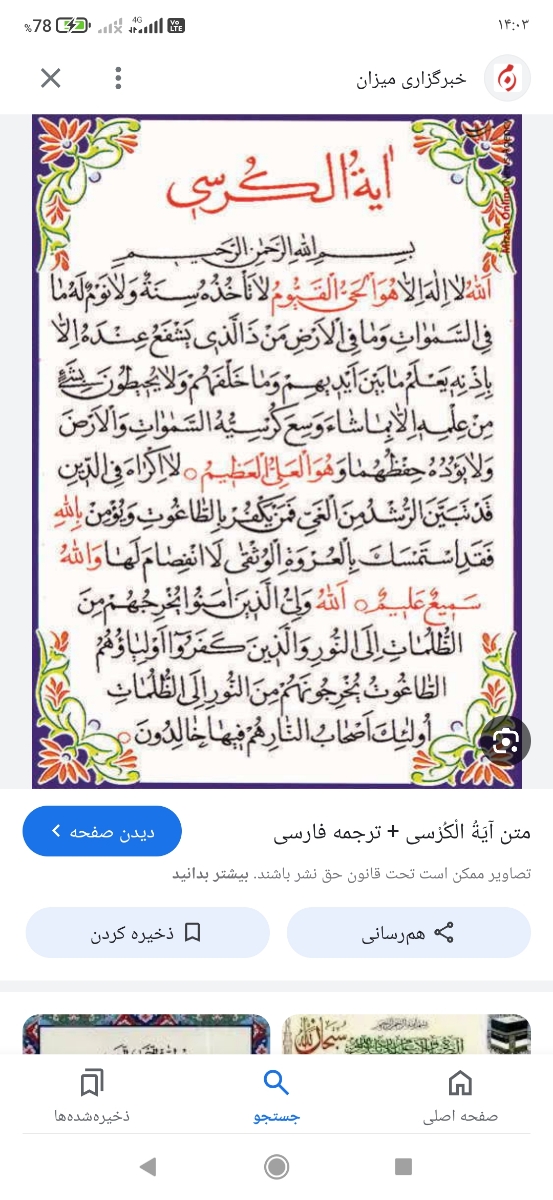 %78 4G Vo LTE ۱۴:۰۳
خبرگزاری میزان
اٰیةُ الـکُرسِي
بِسـمِ اللهِ الرَّحمٰنِ الرَّحیـمِ
اَللهُ لا اِلٰهَ اِلاّ هُوَ الْحَيُّ الْقَيُّومُ لا تَأخُذُهُ سِنَةٌ وَ لا نَوْمٌ لَهُ ما
فِي السَّمٰواتِ وَ ما فِي الْاَرْضِ مَنْ ذَا الَّذي يَشْفَعُ عِنْدَهُ اِلاّ
بِاِذْنِهِ يَعْلَمُ ما بَيْنَ اَيْديهِمْ وَ ما خَلْفَهُمْ وَ لا يُحيطُونَ بِشَيْءٍ
مِنْ عِلْمِهِ اِلاّ بِما شاءَ وَسِعَ كُرْسِيُّهُ السَّمٰواتِ وَ الْاَرْضَ
وَ لا يَؤُدُهُ حِفْظُهُما وَ هُوَ الْعَلِيُّ الْعَظيمُ ○ لا اِكْراهَ فِي الدّينِ
قَدْ تَبَيَّنَ الرُّشْدُ مِنَ الْغَيِّ فَمَنْ يَكْفُرْ بِالطّاغُوتِ وَ يُؤْمِنْ بِاللهِ
فَقَدِ اسْتَمْسَكَ بِالْعُرْوَةِ الْوُثْقٰى لَا انْفِصامَ لَها وَ اللهُ
سَميعٌ عَليمٌ ○ اَللهُ وَلِيُّ الَّذينَ اٰمَنُوا يُخْرِجُهُمْ مِنَ
الظُّلُماتِ اِلَى النُّورِ وَ الَّذينَ كَفَرُوا اَوْلِياؤُهُمُ
الطّاغُوتُ يُخْرِجُونَهُمْ مِنَ النُّورِ اِلَى الظُّلُماتِ
اُولٰئِكَ اَصْحابُ النّارِ هُمْ فيها خالِدُونَ ○
متن آیَةُ الْکُرْسی + ترجمه فارسی
دیدن صفحه
تصاویر ممکن است تحت قانون حق نشر باشند. بیشتر بدانید
هم‌رسانی
ذخیره کردن
صفحه اصلی
جستجو
ذخیره‌شده‌ها